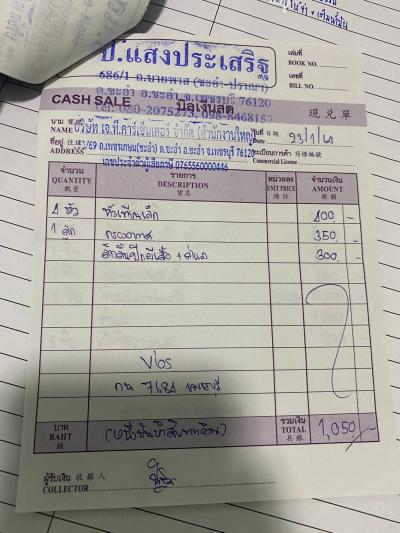 ป.แสงประเสริฐ
686/1 ถ.บายพาส (ชะอำ-ปราณฯ)
ต.ชะอำ อ.ชะอำ จ.เพชรบุรี 76120
เล่มที่
BOOK NO.
เลขที่
BILL NO.
CASH SALE
บิลเงินสด
現兑單
นาม
NAME
บริษัท เจ.ที.คาร์เซ็นเตอร์ จำกัด (สำนักงานใหญ่)
วันที่ 日期
Date
23/1/60
ที่อยู่
ADDRESS
/69 ถ.เพชรเกษม(ชะอำ) ต.ชะอำ อ.ชะอำ จ.เพชรบุรี 76120
ทะเบียนการค้า 商標編號
Commercial License
เลขประจำตัวผู้เสียภาษี 0765560000446
จำนวน
QUANTITY
數量
รายการ
DESCRIPTION
貨名
หน่วยละ
UNIT PRICE
備註
จำนวนเงิน
AMOUNT
銀額
4 หัว หัวเทียนเล็ก 400.-
1 ลูก กรองอากาศ 350.-
300.-
Vios
กน 7684 เพชรบุรี
บาท
BAHT
銖
(หนึ่งพันห้าสิบบาทถ้วน)
รวมเงิน
TOTAL
共銀
1,050.-
ผู้รับเงิน 收銀人
COLLECTOR